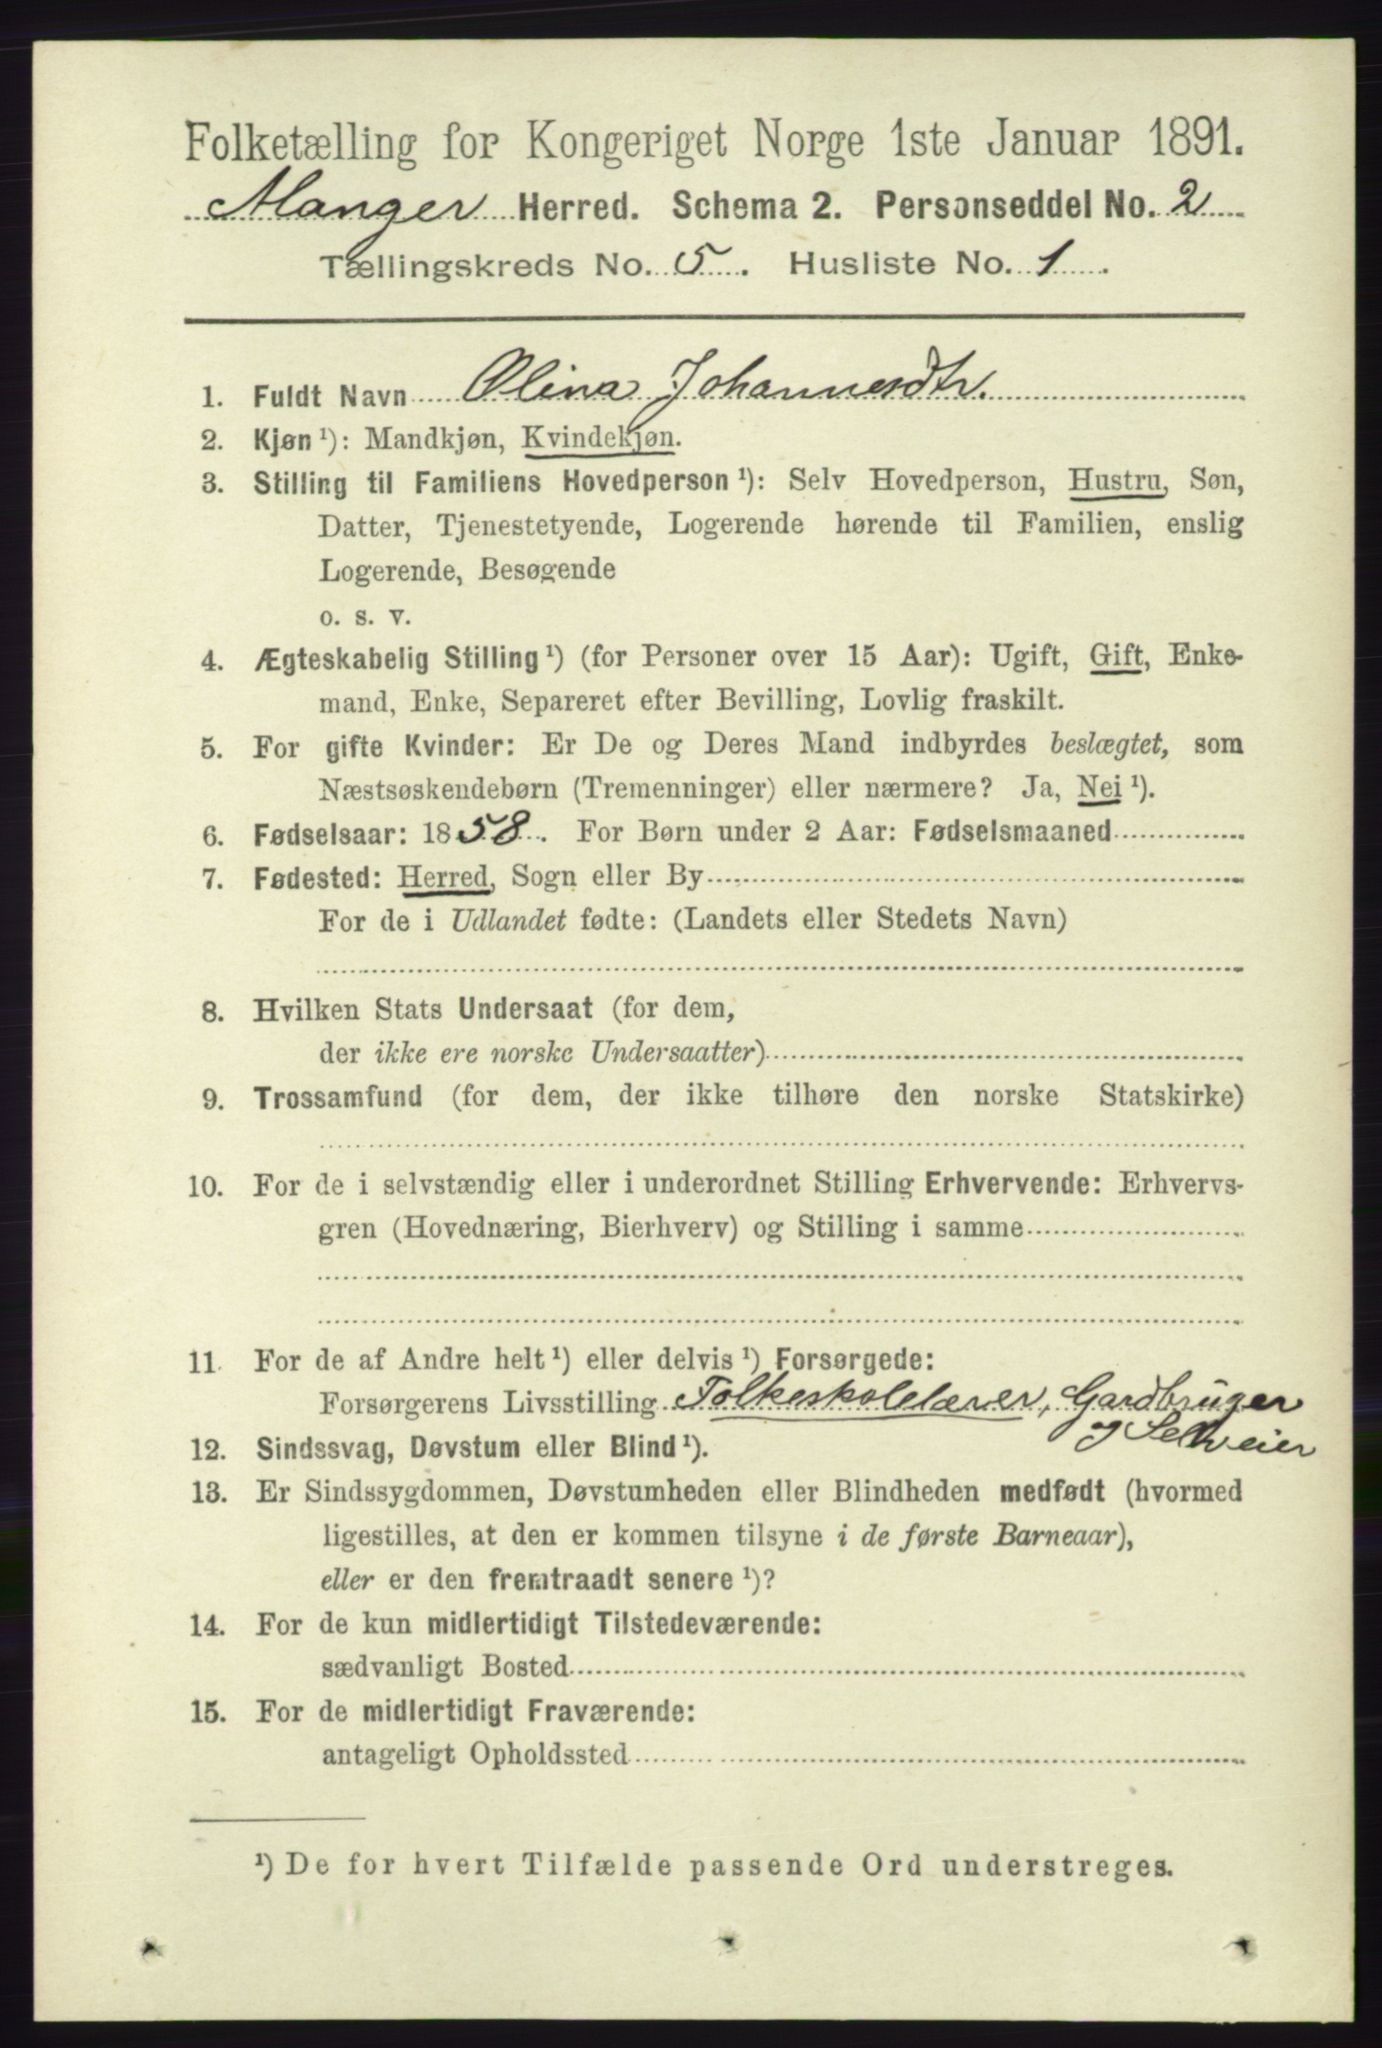 Folketælling for Kongeriget Norge 1ste Januar 1891.
Manger Herred. Schema 2. Personseddel No. 2
Tællingskreds No. 5. Husliste No. 1.
1. Fuldt Navn Olina Johannesdtr.
2. Kjøn ¹): Mandkjøn, Kvindekjøn.
3. Stilling til Familiens Hovedperson ¹): Selv Hovedperson, Hustru, Søn,
Datter, Tjenestetyende, Logerende hørende til Familien, enslig
Logerende, Besøgende
o. s. v.
4. Ægteskabelig Stilling ¹) (for Personer over 15 Aar): Ugift, Gift, Enke-
mand, Enke, Separeret efter Bevilling, Lovlig fraskilt.
5. For gifte Kvinder: Er De og Deres Mand indbyrdes beslægtet, som
Næstsøskendebørn (Tremenninger) eller nærmere? Ja, Nei ¹).
6. Fødselsaar: 1858. For Børn under 2 Aar: Fødselsmaaned
7. Fødested: Herred, Sogn eller By
For de i Udlandet fødte: (Landets eller Stedets Navn)
8. Hvilken Stats Undersaat (for dem,
der ikke ere norske Undersaatter)
9. Trossamfund (for dem, der ikke tilhøre den norske Statskirke)
10. For de i selvstændig eller i underordnet Stilling Erhvervende: Erhvervs-
gren (Hovednæring, Bierhverv) og Stilling i samme
11. For de af Andre helt ¹) eller delvis ¹) Forsørgede:
Forsørgerens Livsstilling Folkeskolelærer, Gardbruger
og Selveier
12. Sindssvag, Døvstum eller Blind ¹).
13. Er Sindssygdommen, Døvstumheden eller Blindheden medfødt (hvormed
ligestilles, at den er kommen tilsyne i de første Barneaar),
eller er den fremtraadt senere ¹)?
14. For de kun midlertidigt Tilstedeværende:
sædvanligt Bosted
15. For de midlertidigt Fraværende:
antageligt Opholdssted
¹) De for hvert Tilfælde passende Ord understreges.